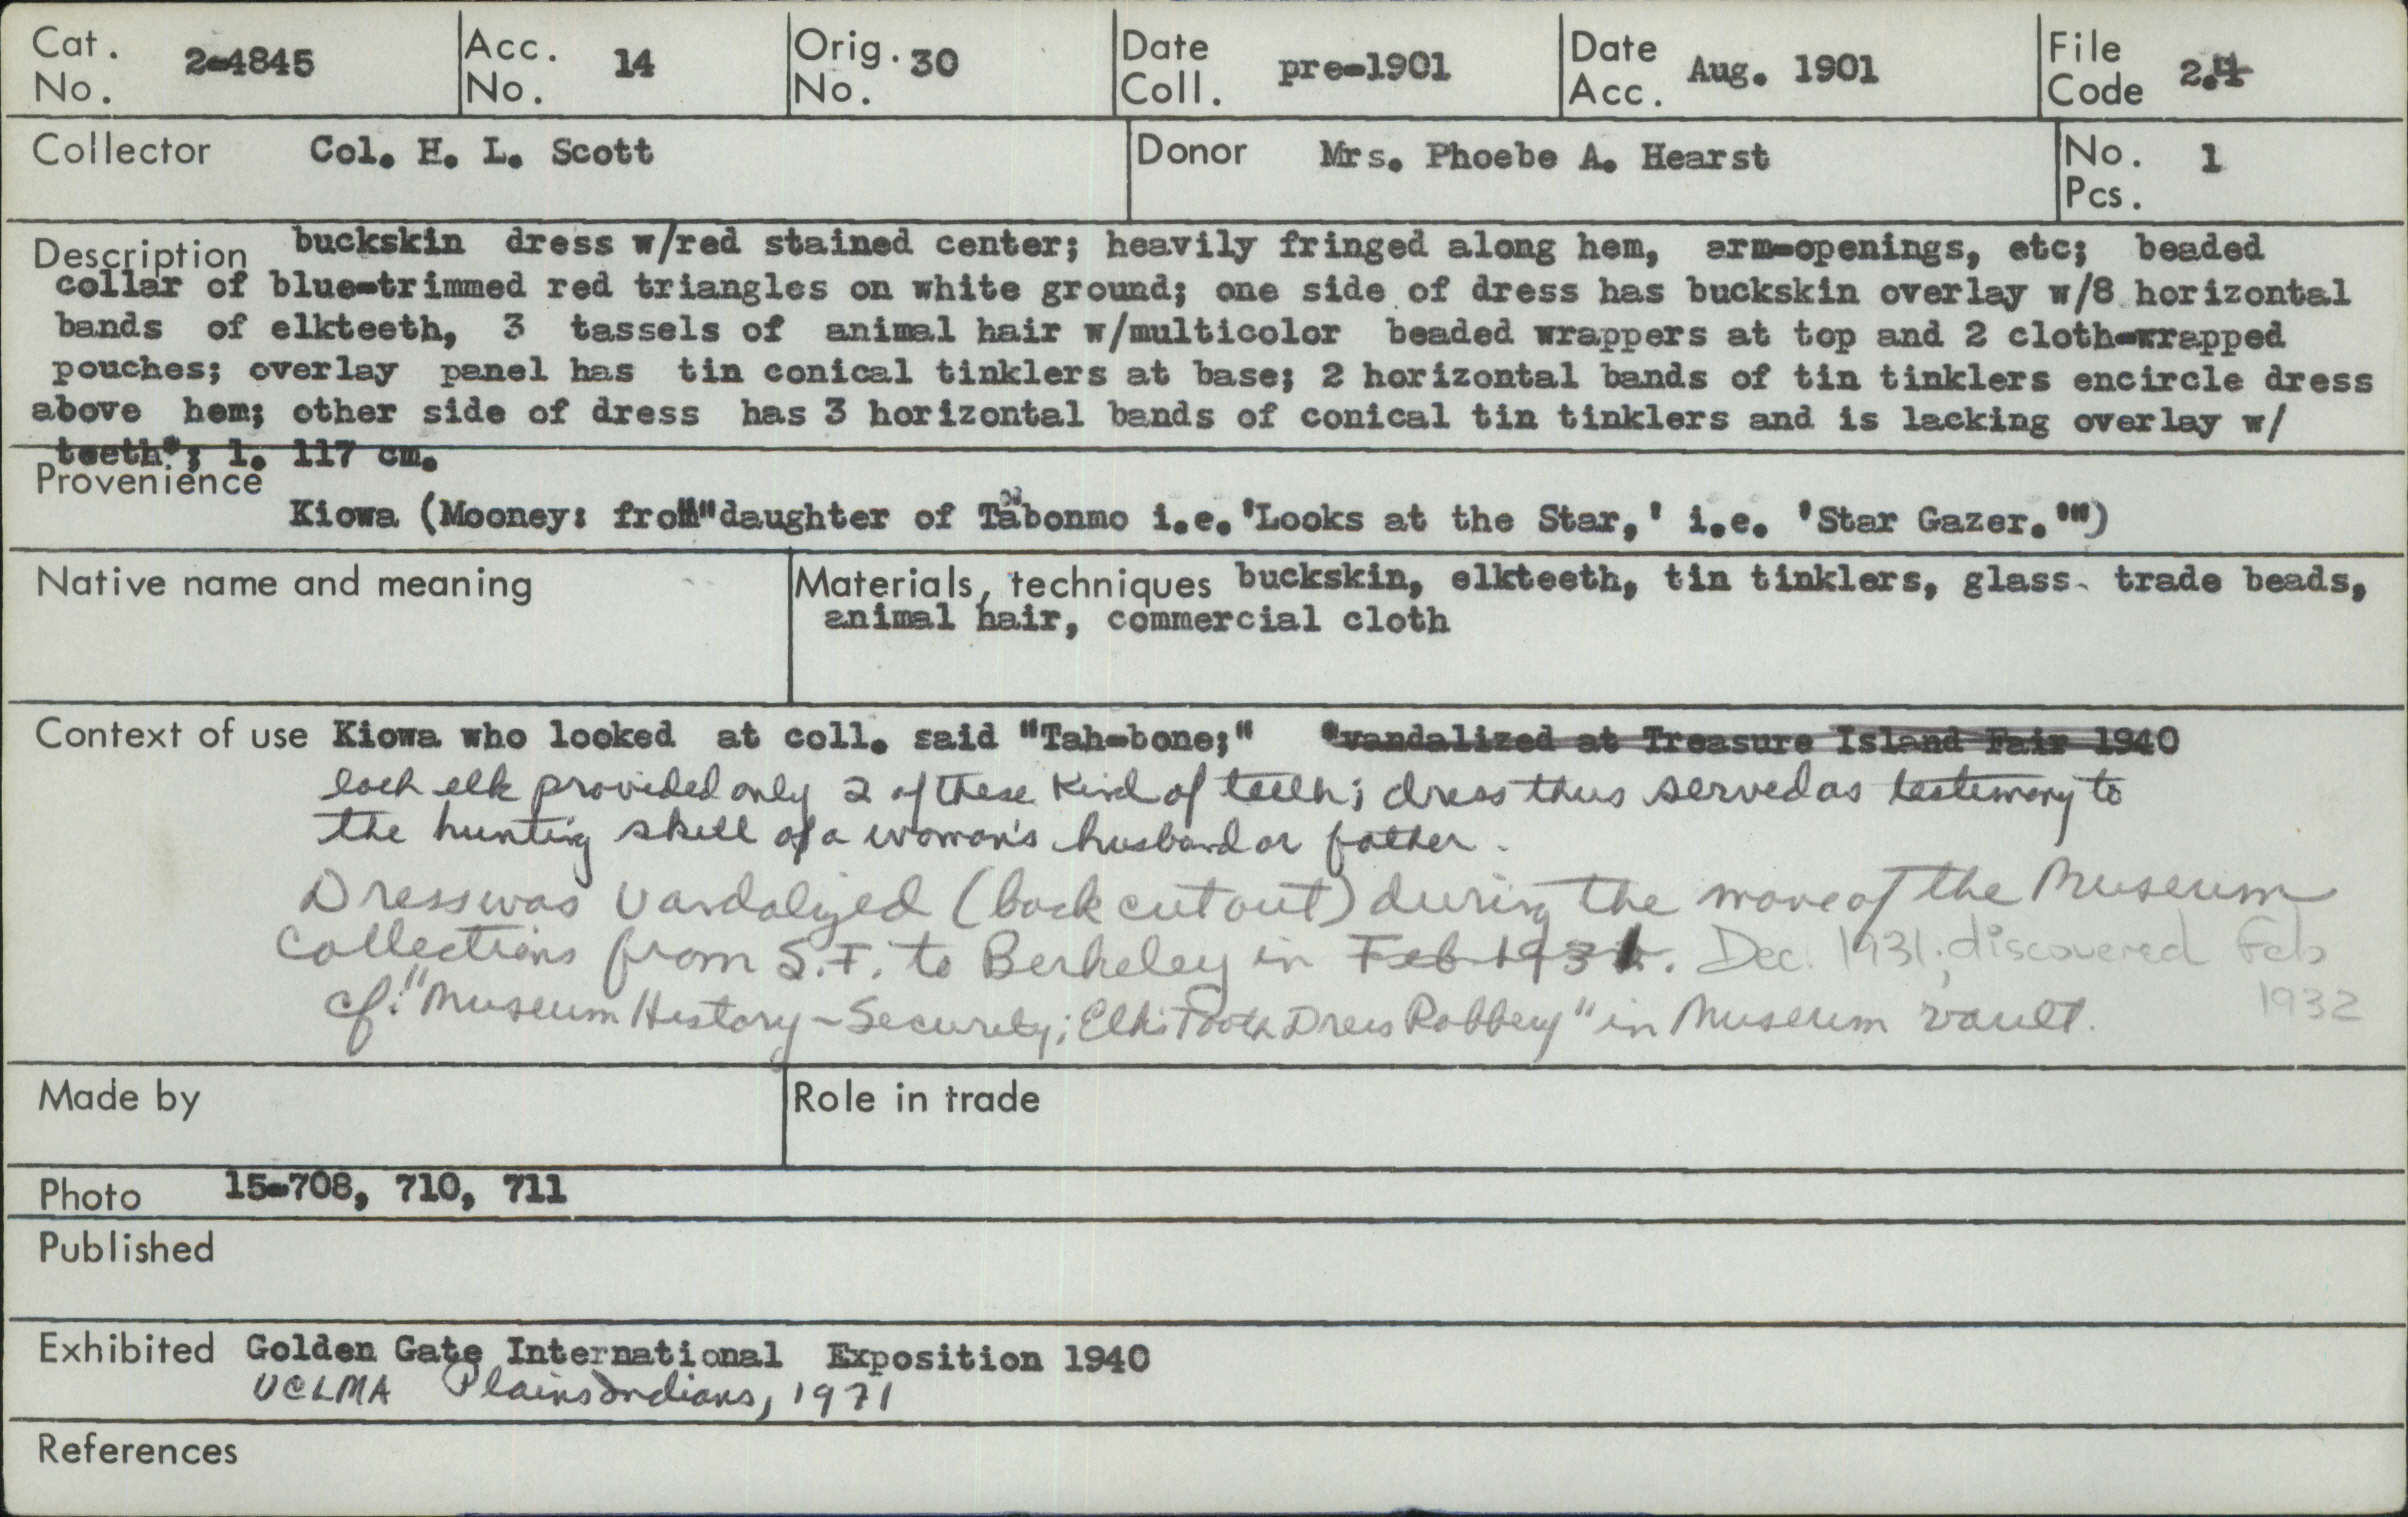 Cat. No. 2-4845 Acc. No. 14 Orig. No. 30 Date Coll. pre-1901 Date Acc. Aug. 1901 File Code 2.4
Collector Col. H. L. Scott Donor Mrs. Phoebe A. Hearst No. Pcs. 1
Description buckskin dress w/red stained center; heavily fringed along hem, arm-openings, etc; beaded
collar of blue-trimmed red triangles on white ground; one side of dress has buckskin overlay w/8 horizontal
bands of elkteeth, 3 tassels of animal hair w/multicolor beaded wrappers at top and 2 cloth-wrapped
pouches; overlay panel has tin conical tinklers at base; 2 horizontal bands of tin tinklers encircle dress
above hem; other side of dress has 3 horizontal bands of conical tin tinklers and is lacking overlay w/
teeth*; l. 117 cm.
Provenience
Kiowa (Mooney: from "daughter of Tabonmo i.e. 'Looks at the Star,' i.e. 'Star Gazer.'")
Native name and meaning
Materials, techniques buckskin, elkteeth, tin tinklers, glass trade beads,
animal hair, commercial cloth
Context of use Kiowa who looked at coll. said "Tah-bone;" *vandalized at Treasure Island Fair 1940
each elk provided only 2 of these kind of teeth; dress thus served as testimony to
the hunting skill of a woman's husband or father.
Dress was vandalized (back cut out) during the move of the Museum
Collections from S.F. to Berkeley in Feb 1931. Dec. 1931; discovered Feb
1932
cf. "Museum History - Security; Elk Tooth Dress Robbery" in Museum vault.
Made by Role in trade
Photo 15-708, 710, 711
Published
Exhibited Golden Gate International Exposition 1940
UCLMA Plains Indians, 1971
References